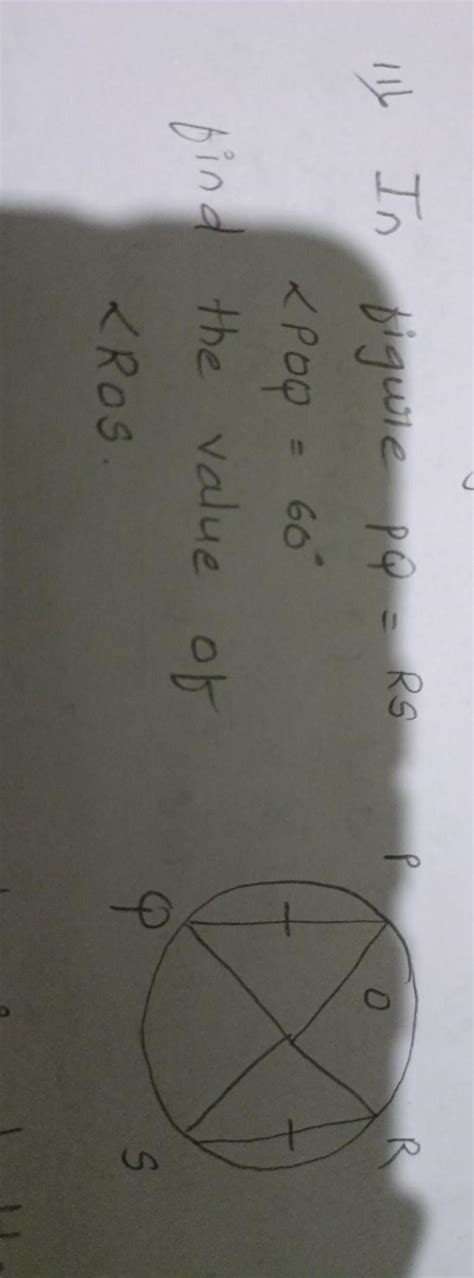 iii) In figure PQ = RS
<POQ = 60°
find the value of
<ROS.
P
O
R
Q
S